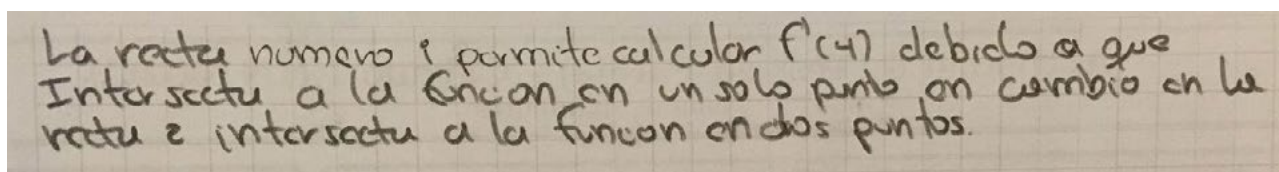 La recta numero 1 permite calcular f'(4) debido a que
Intersecta a la funcion en un solo punto en cambio en la
recta 2 intersecta a la funcon en dos puntos.